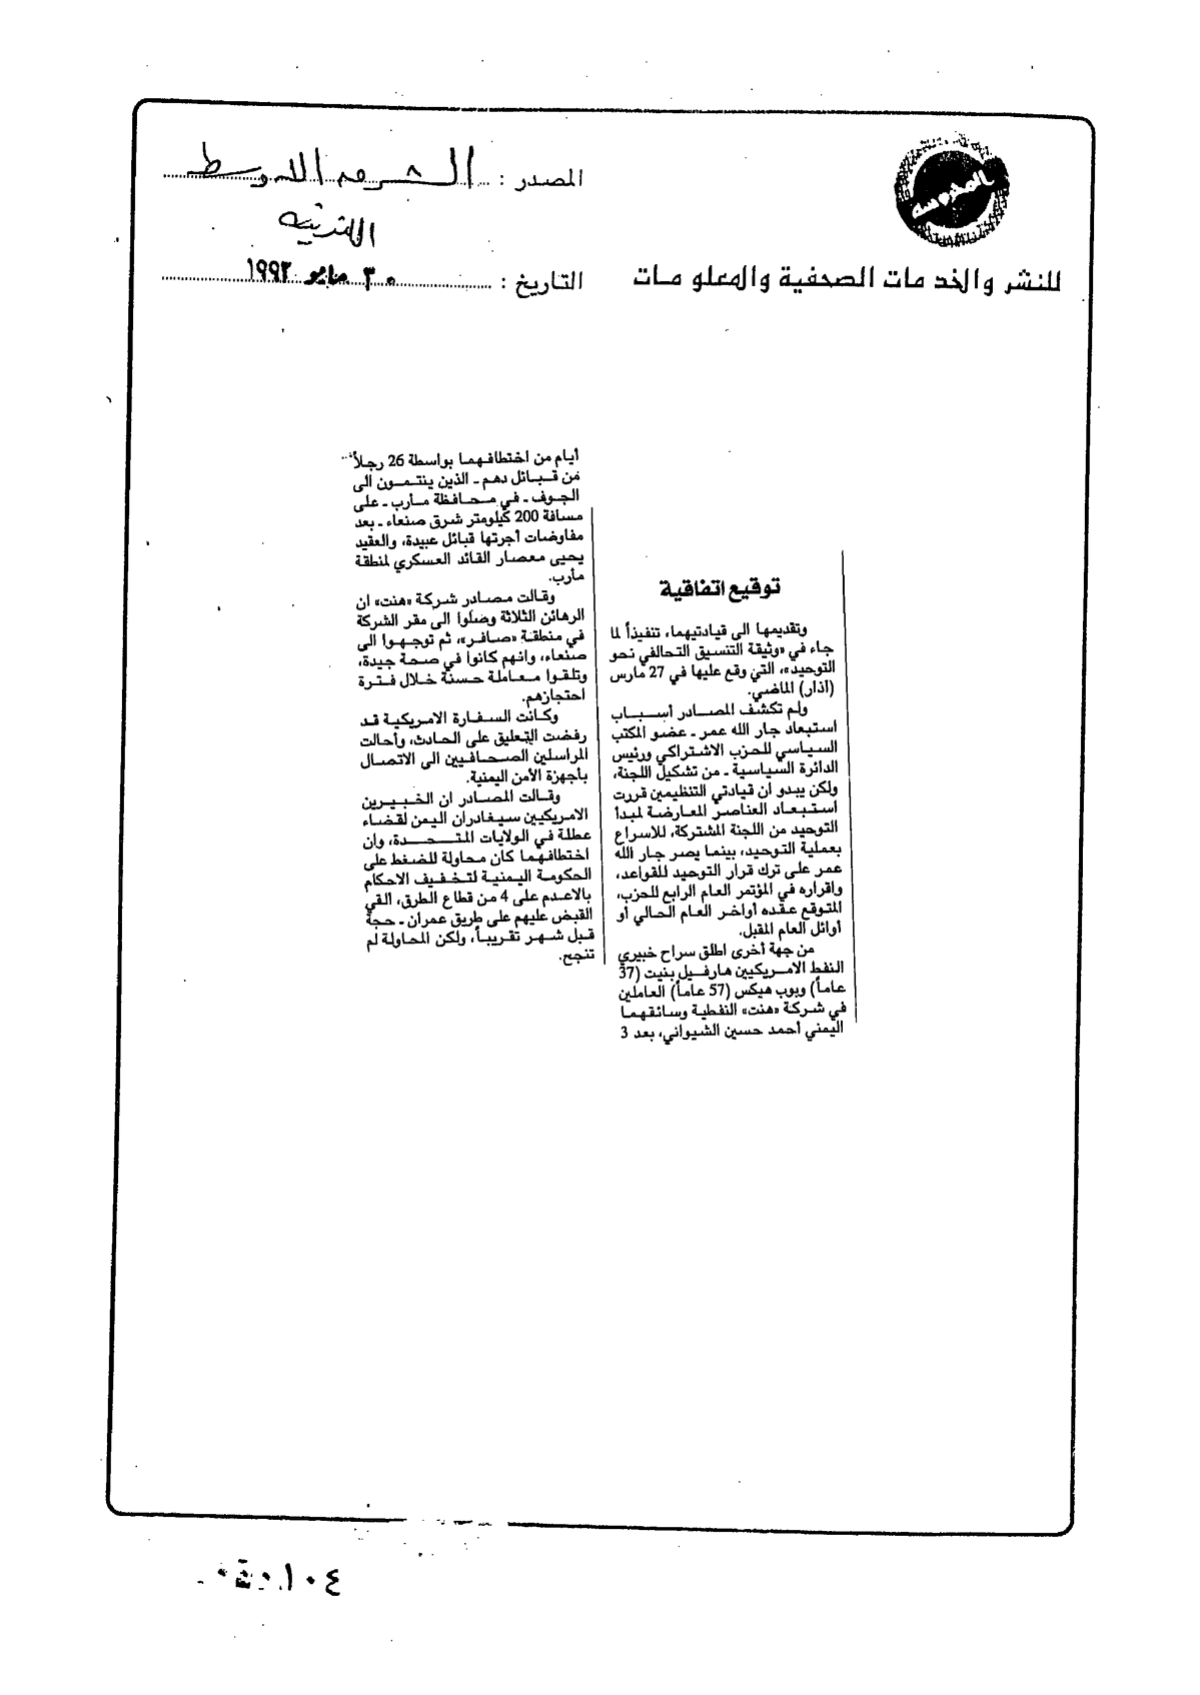 المحروسة
للنشر والخدمات الصحفية والمعلومات
المصدر : الشرق الأوسط
اللندنية
التاريخ : ٣٠ مايو ١٩٩٣
توقيع اتفاقية
وتقديمها الى قيادتيهما، تنفيذاً لما
جاء في «وثيقة التنسيق التحالفي نحو
التوحيد»، التي وقع عليها في 27 مارس
(آذار) الماضي.
ولم تكشف المصادر أسباب
استبعاد جار الله عمر ـ عضو المكتب
السياسي للحزب الاشتراكي ورئيس
الدائرة السياسية ـ من تشكيل اللجنة،
ولكن يبدو ان قيادتي التنظيمين قررت
استبعاد العناصر المعارضة لمبدأ
التوحيد من اللجنة المشتركة، للاسراع
بعملية التوحيد، بينما يصر جار الله
عمر على ترك قرار التوحيد للقواعد،
واقراره في المؤتمر العام الرابع للحزب،
المتوقع عقده أواخر العام الحالي أو
أوائل العام المقبل.
من جهة أخرى اطلق سراح خبيري
النفط الامريكيين هارفيل بنيت (37
عاماً) وبوب هيكس (57 عاماً) العاملين
في شركة «هنت» النفطية وسائقهما
اليمني أحمد حسين الشيواني، بعد 3
أيام من اختطافهما بواسطة 26 رجلاً
من قبائل دهم ـ الذين ينتمون الى
الجوف ـ في محافظة مأرب ـ على
مسافة 200 كيلومتر شرق صنعاء ـ بعد
مفاوضات أجرتها قبائل عبيدة، والعقيد
يحيى معصار القائد العسكري لمنطقة
مأرب.
وقالت مصادر شركة «هنت» ان
الرهائن الثلاثة وصلوا الى مقر الشركة
في منطقة «صافر»، ثم توجهوا الى
صنعاء، وانهم كانوا في صحة جيدة،
وتلقوا معاملة حسنة خلال فترة
احتجازهم.
وكانت السفارة الامريكية قد
رفضت التعليق على الحادث، وأحالت
المراسلين الصحافيين الى الاتصال
بأجهزة الأمن اليمنية.
وقالت المصادر ان الخبيرين
الامريكيين سيغادران اليمن لقضاء
عطلة في الولايات المتحدة، وان
اختطافهما كان محاولة للضغط على
الحكومة اليمنية لتخفيف الاحكام
بالاعدم على 4 من قطاع الطرق، القي
القبض عليهم على طريق عمران ـ حجة
قبل شهر تقريباً، ولكن المحاولة لم
تنجح.